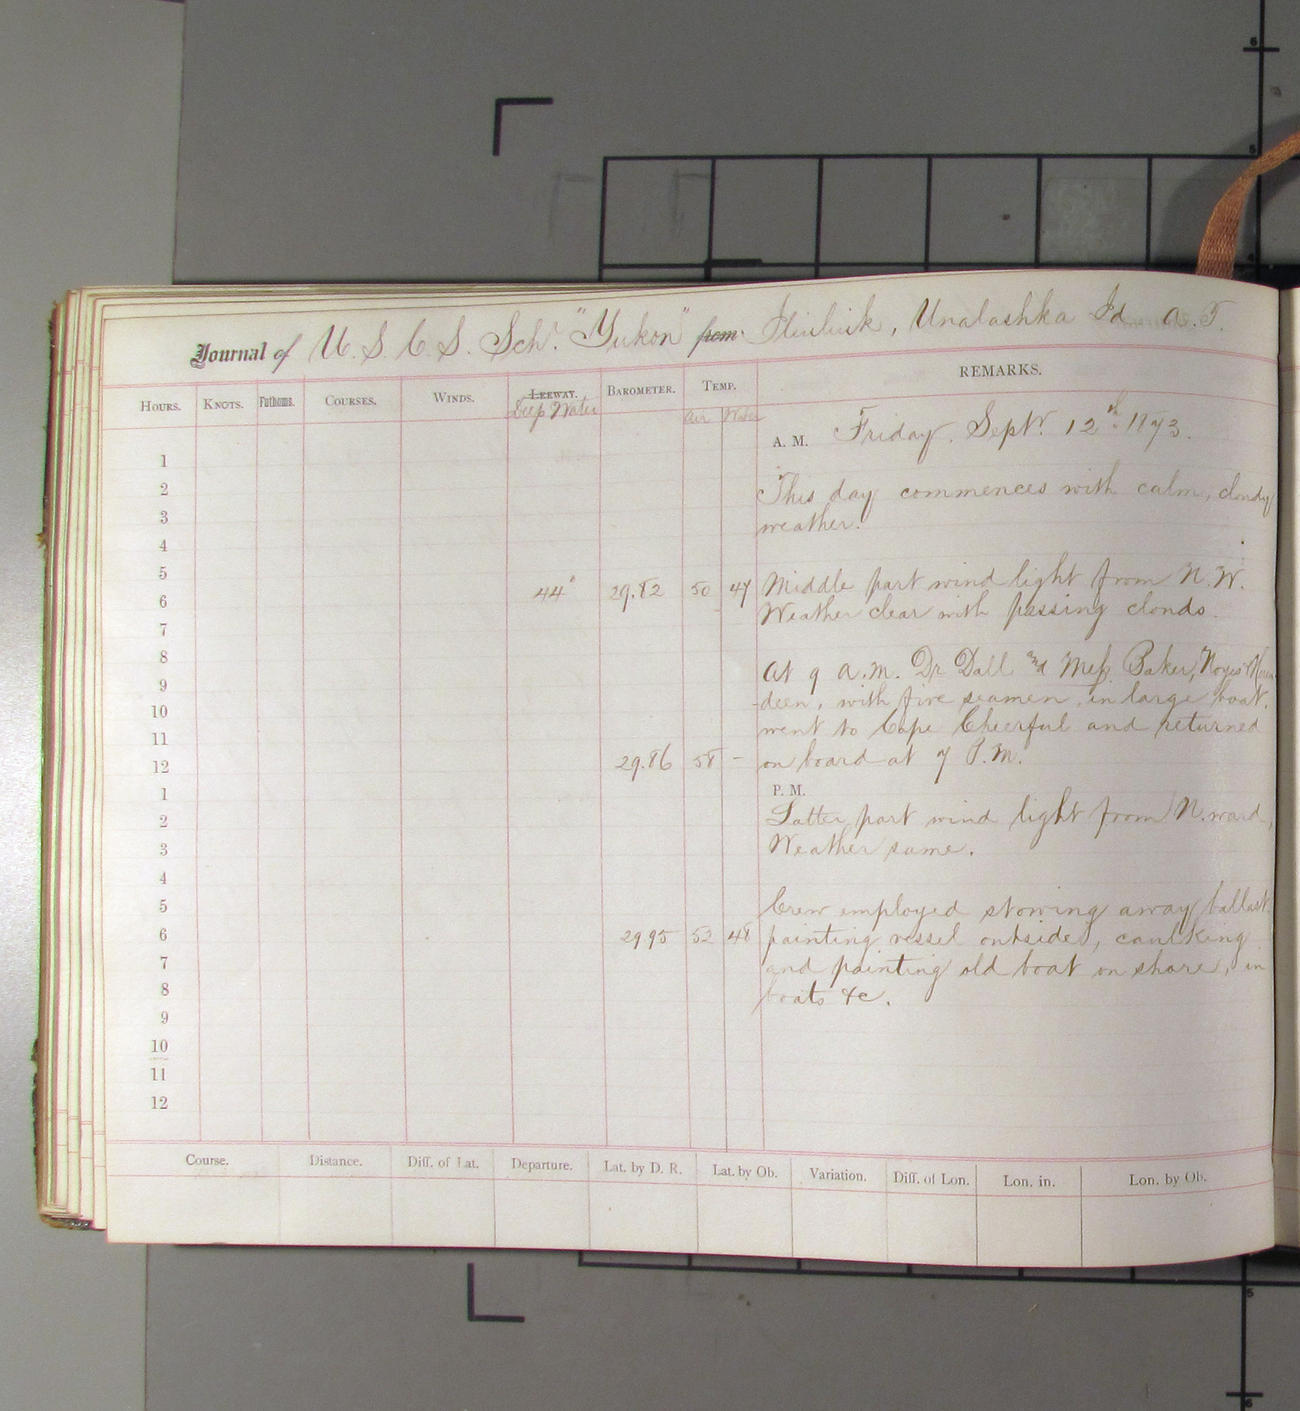 Journal of U. S. C. S. Schr. "Yukon" from Iliuliuk, Unalashka Id A. T.
HOURS. KNOTS. Fathoms. COURSES. WINDS. LEEWAY. BAROMETER. TEMP. REMARKS.
Deep Water Air Water
A. M. Friday. Sept. 12th 1873.
1
2 This day commences with calm, cloudy
3 weather.
4
5
6 44° 29.82 50 47 Middle part wind light from N. W.
7 Weather clear with passing clouds.
8
9 At 9 A.M. Dr Dall and Mess. Baker, Noyes &
10 deen, with five seamen, in large boat,
11 went to Cape Cheerful and returned
12 29.86 58 – on board at 7 P.M.
P. M.
1
2 Latter part wind light from N.ward,
3 Weather same.
4
5 Crew employed stowing away ballast
6 29.95 52 48 painting vessel outside, caulking
7 and painting old boat on shore, in
8 boats &c.
9
10
11
12
Course. Distance. Diff. of Lat. Departure. Lat. by D. R. Lat. by Ob. Variation. Diff. of Lon. Lon. in. Lon. by Ob.